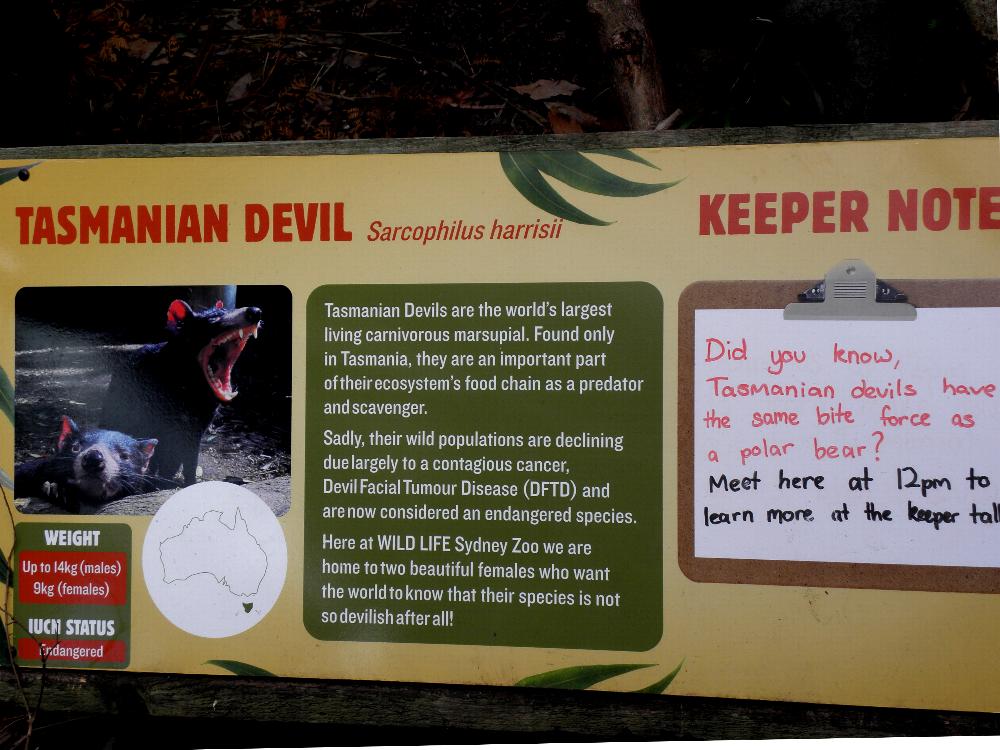 TASMANIAN DEVIL Sarcophilus harrisii
Tasmanian Devils are the world's largest
living carnivorous marsupial. Found only
in Tasmania, they are an important part
of their ecosystem's food chain as a predator
and scavenger.
Sadly, their wild populations are declining
due largely to a contagious cancer,
Devil Facial Tumour Disease (DFTD) and
are now considered an endangered species.
Here at WILD LIFE Sydney Zoo we are
home to two beautiful females who want
the world to know that their species is not
so devilish after all!
WEIGHT
Up to 14kg (males)
9kg (females)
IUCN STATUS
Endangered
KEEPER NOTE
Did you know,
Tasmanian devils have
the same bite force as
a polar bear?
Meet here at 12pm to
learn more at the keeper tal